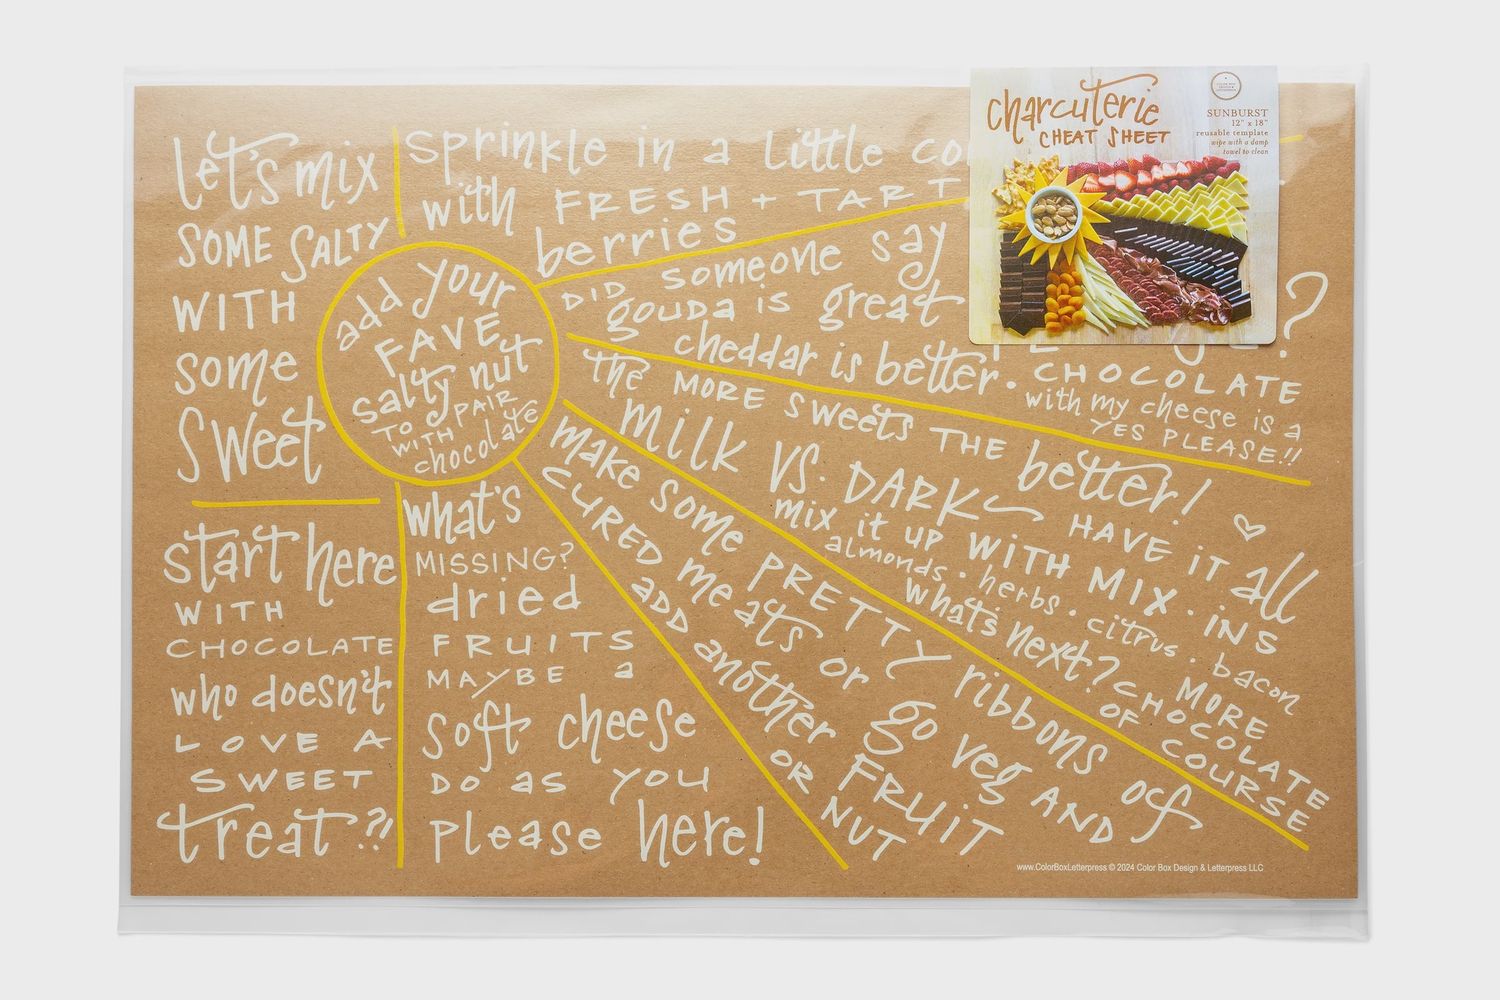 Let's mix
SOME SALTY
WITH
some
sweet
sprinkle in a little
with FRESH + TART
berries
DID someone say
gouda is great
cheddar is better.
CHOCOLATE
with my cheese is a
YES PLEASE!!
add your
FAVE
salty nut
TO PAIR
WITH
chocolate
the MORE sweets THE better!
milk VS. DARK HAVE IT all
mix it up WITH MIX·INS
almonds · herbs · citrus · bacon
what's next? MORE
CHOCOLATE
OF COURSE
make some PRETTY ribbons of
CURED meats or go veg AND
ADD another FRUIT
OR NUT
what's
MISSING?
dried
FRUITS
MAYBE a
soft cheese
DO as you
please here!
start here
WITH
CHOCOLATE
who doesn't
LOVE A
SWEET
treat?!
charcuterie
CHEAT SHEET
SUNBURST
12" x 18"
reusable template
wipe with a damp
towel to clean
www.ColorBoxLetterpress © 2024 Color Box Design & Letterpress LLC